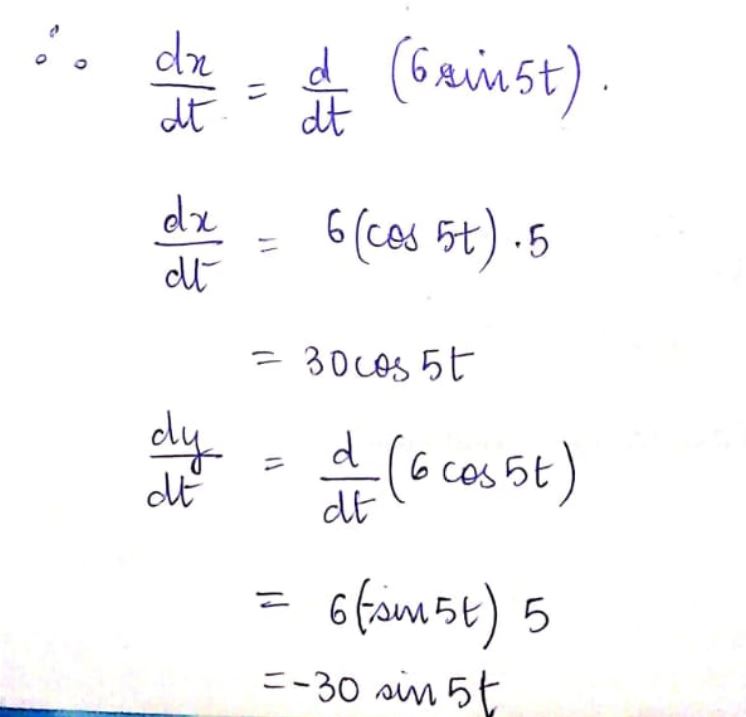 ∴ dx/dt = d/dt (6 sin 5t).
dx/dt = 6(cos 5t).5
= 30 cos 5t
dy/dt = d/dt (6 cos 5t)
= 6(-sin 5t) 5
= -30 sin 5t